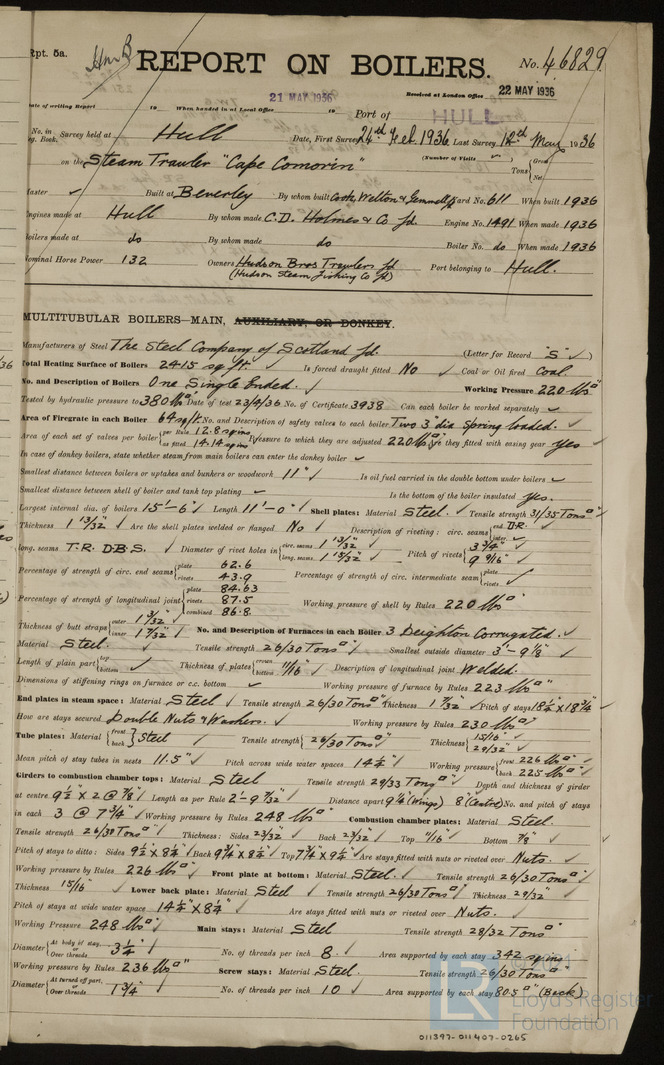 Rpt. 5a.
REPORT ON BOILERS.
No. 46829
21 MAY 1936
Received at London Office 22 MAY 1936
Date of writing Report 19 When handed in at Local Office 19 Port of HULL
No. in Reg. Book. Survey held at Hull Date, First Survey 24th Feb. 1936 Last Survey 12th May 1936
on the Steam Trawler "Cape Comorin" (Number of Visits ✓) Tons {Gross Net
Master ✓ Built at Beverley By whom built Cook, Welton & Gemmell Ld Yard No. 611 When built 1936
Engines made at Hull By whom made C.D. Holmes & Co Ld. Engine No. 1491 When made 1936
Boilers made at do By whom made do Boiler No. do When made 1936
Nominal Horse Power 132 Owners Hudson Bros Trawlers Ld Port belonging to Hull.
(Hudson Steam Fishing Co Ld)
MULTITUBULAR BOILERS—MAIN, AUXILIARY, OR DONKEY.
Manufacturers of Steel The Steel Company of Scotland Ld. (Letter for Record "S" ✓)
Total Heating Surface of Boilers 2415 sq ft. Is forced draught fitted No ✓ Coal or Oil fired Coal
No. and Description of Boilers One Single Ended. ✓ Working Pressure 220 lbs□"
Tested by hydraulic pressure to 380 lbs□" Date of test 23/4/36 No. of Certificate 3938 Can each boiler be worked separately ✓
Area of Firegrate in each Boiler 64 sq ft. No. and Description of safety valves to each boiler Two 3" dia Spring loaded. ✓
Area of each set of valves per boiler {per Rule 12.8 sq ins as fitted 14.14 sq ins Pressure to which they are adjusted 220 lbs□" Are they fitted with easing gear yes ✓
In case of donkey boilers, state whether steam from main boilers can enter the donkey boiler ✓
Smallest distance between boilers or uptakes and bunkers or woodwork 11" ✓ Is oil fuel carried in the double bottom under boilers ✓
Smallest distance between shell of boiler and tank top plating ✓ Is the bottom of the boiler insulated yes.
Largest internal dia. of boilers 15'-6" ✓ Length 11'-0" ✓ Shell plates: Material Steel. ✓ Tensile strength 31/35 Tons□" ✓
Thickness 1 13/32" ✓ Are the shell plates welded or flanged No ✓ Description of riveting: circ. seams {end D.R. inter. ✓
long. seams T.R. D.B.S. ✓ Diameter of rivet holes in {circ. seams 1 13/32" ✓ long. seams 1 13/32" ✓ Pitch of rivets {3 3/4" ✓ 9 9/16" ✓
Percentage of strength of circ. end seams {plate 62.6 rivets 43.9 Percentage of strength of circ. intermediate seam {plate rivets ✓
Percentage of strength of longitudinal joint {plate 84.63 rivets 87.5 combined 86.8 Working pressure of shell by Rules 220 lbs□"
Thickness of butt straps {outer 1 3/32" ✓ inner 1 7/32" ✓ No. and Description of Furnaces in each Boiler 3 Deighton Corrugated. ✓
Material Steel. ✓ Tensile strength 26/30 Tons□" ✓ Smallest outside diameter 3'-9 1/8" ✓
Length of plain part {top bottom ✓ Thickness of plates {crown bottom 11/16" ✓ Description of longitudinal joint Welded.
Dimensions of stiffening rings on furnace or c.c. bottom ✓ Working pressure of furnace by Rules 223 lbs□"
End plates in steam space: Material Steel ✓ Tensile strength 26/30 Tons□" ✓ Thickness 1 7/32" ✓ Pitch of stays 18 1/4" x 18 3/4" ✓
How are stays secured Double Nuts & Washers. ✓ Working pressure by Rules 230 lbs□"
Tube plates: Material {front back} Steel ✓ Tensile strength {26/30 Tons□" ✓ Thickness {15/16" ✓ 29/32" ✓
Mean pitch of stay tubes in nests 11.5" ✓ Pitch across wide water spaces 14 1/2" ✓ Working pressure {front 226 lbs□" back 225 lbs□"
Girders to combustion chamber tops: Material Steel Tensile strength 29/33 Tons□" ✓ Depth and thickness of girder
at centre 9 1/2" x 2 @ 7/8" ✓ Length as per Rule 2'-9 7/32" ✓ Distance apart 9 1/4" (Wings) 8" (Centre) No. and pitch of stays
in each 3 @ 7 3/4" ✓ Working pressure by Rules 248 lbs□" Combustion chamber plates: Material Steel.
Tensile strength 26/30 Tons□" ✓ Thickness: Sides 23/32" ✓ Back 23/32" ✓ Top 11/16" ✓ Bottom 7/8" ✓
Pitch of stays to ditto: Sides 9 1/2" x 8 1/4" ✓ Back 9 3/4" x 8 1/4" ✓ Top 7 3/4" x 9 1/4" ✓ Are stays fitted with nuts or riveted over Nuts. ✓
Working pressure by Rules 226 lbs□" Front plate at bottom: Material Steel. ✓ Tensile strength 26/30 Tons□" ✓
Thickness 15/16" ✓ Lower back plate: Material Steel ✓ Tensile strength 26/30 Tons□" ✓ Thickness 29/32" ✓
Pitch of stays at wide water space 14 1/4" x 8 1/4" ✓ Are stays fitted with nuts or riveted over Nuts. ✓
Working Pressure 248 lbs□" ✓ Main stays: Material Steel Tensile strength 28/32 Tons□"
Diameter {At body of stay, or Over threads 3 1/4" ✓ No. of threads per inch 8. ✓ Area supported by each stay 342 sq ins
Working pressure by Rules 236 lbs□" Screw stays: Material Steel. Tensile strength 26/30 Tons□"
Diameter {At turned off part, or Over threads 1 3/4" ✓ No. of threads per inch 10 ✓ Area supported by each stay 80.5□" (Back)
© 2021
LR Lloyd's Register Foundation
011397-011407-0265